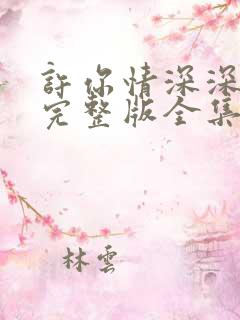 許你情深深
完整版全集
林雲